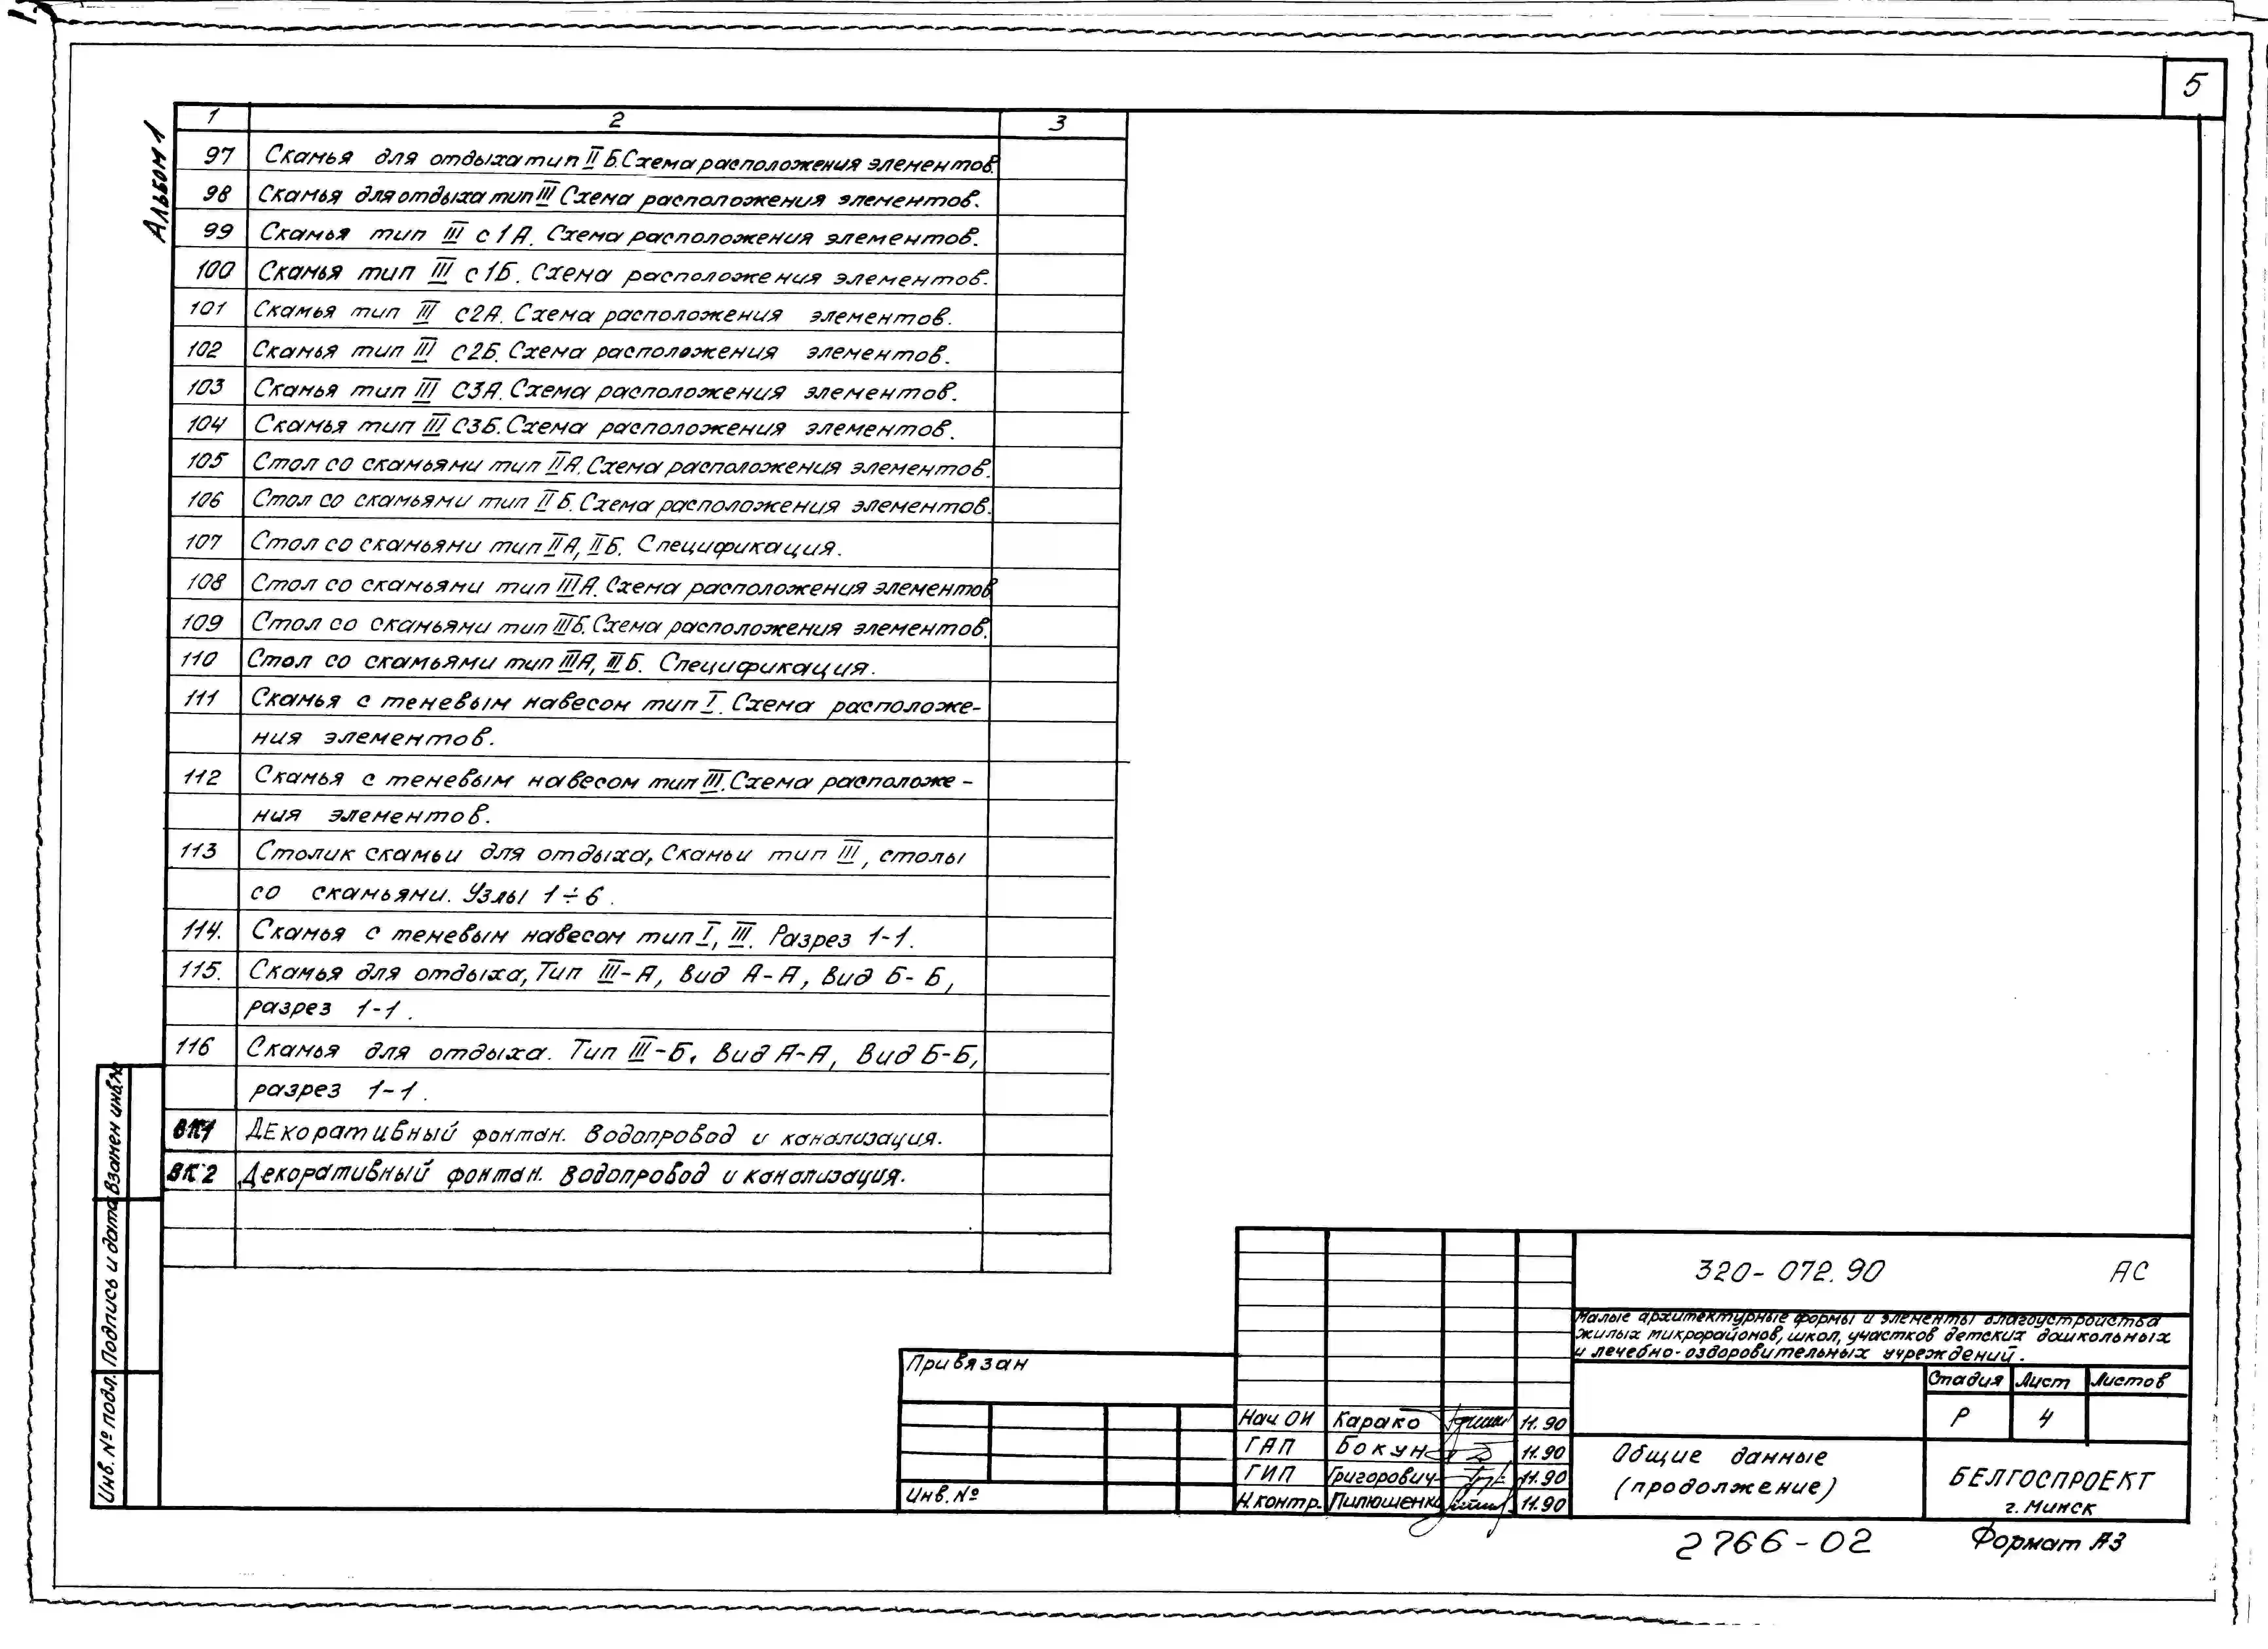 5
Альбом 1
1 2 3
97 Скамья для отдыха тип II Б. Схема расположения элементов.
98 Скамья для отдыха тип III Схема расположения элементов.
99 Скамья тип III с1А. Схема расположения элементов.
100 Скамья тип III с1Б. Схема расположения элементов.
101 Скамья тип III с2А. Схема расположения элементов.
102 Скамья тип III с2Б. Схема расположения элементов.
103 Скамья тип III С3А. Схема расположения элементов.
104 Скамья тип III С3Б. Схема расположения элементов.
105 Стол со скамьями тип IIА. Схема расположения элементов.
106 Стол со скамьями тип II Б. Схема расположения элементов.
107 Стол со скамьями тип IIА, IIБ. Спецификация.
108 Стол со скамьями тип IIIА. Схема расположения элементов
109 Стол со скамьями тип IIIБ. Схема расположения элементов.
110 Стол со скамьями тип IIIА, IIIБ. Спецификация.
111 Скамья с теневым навесом тип I. Схема расположе-
ния элементов.
112 Скамья с теневым навесом тип III. Схема расположе-
ния элементов.
113 Столик скамьи для отдыха, Скамьи тип III, столы
со скамьями. Узлы 1÷6.
114. Скамья с теневым навесом тип I, III. Разрез 1-1.
115. Скамья для отдыха, Тип III-А, Вид А-А, Вид Б-Б,
разрез 1-1.
116 Скамья для отдыха. Тип III-Б, Вид А-А, Вид Б-Б,
разрез 1-1.
ВК1 Декоративный фонтан. Водопровод и канализация.
ВК2 Декоративный фонтан. Водопровод и канализация.
Взамен инв.№
Подпись и дата
Инв. № подл.
Привязан
Инв. №
320-072.90 АС
Малые архитектурные формы и элементы благоустройства
жилых микрорайонов, школ, участков детских дошкольных
и лечебно-оздоровительных учреждений.
Стадия Лист Листов
Р 4
Нач ОИ Карако 11.90
ГАП Бокун 11.90
ГИП Григорович 11.90
Н.контр. Пилюшенко 11.90
Общие данные
(продолжение)
БЕЛГОСПРОЕКТ
г. Минск
2766-02 Формат А3